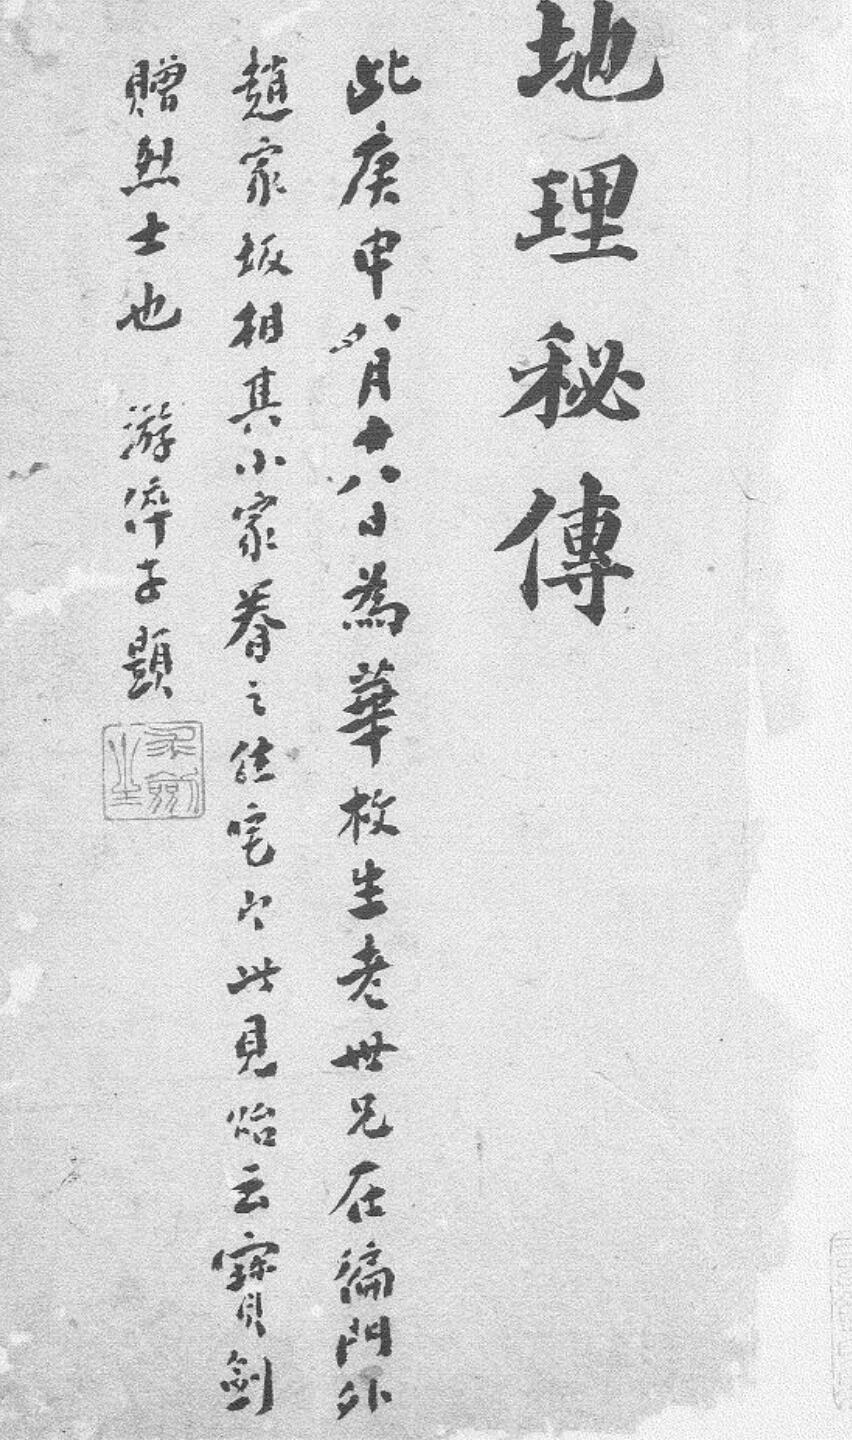 地理秘傳
此庚申八月十八日為華枚生老世兄在徧門外
趙家坂相其小家眷之住宅以此見貽云寶劍
贈烈士也 游倅子題